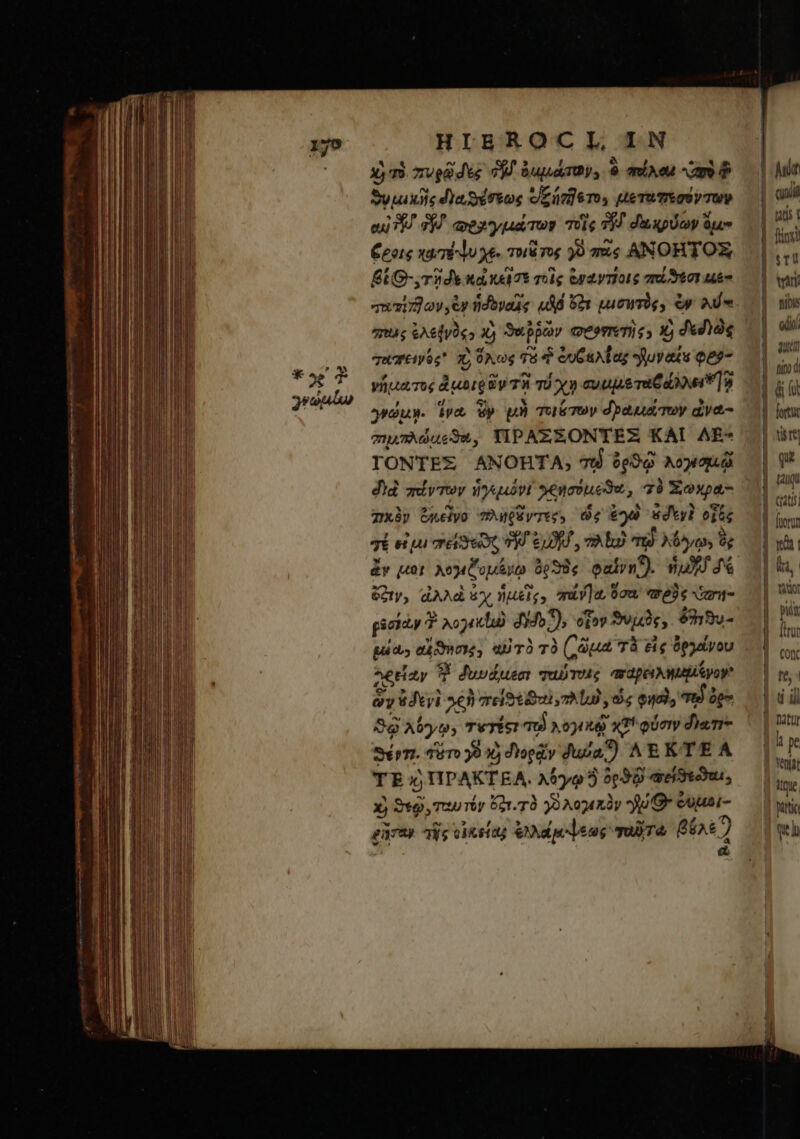 170
HIEROCL. IN
καὶ τὸ πυρῶδες τῶν ὀμμάτων, ὃ πάλαι ἀπὸ τῆς
θυμικῆς διαθέσεως ἐξήπτετο, μεταπεσόντων
αὐτῶν τῶν πραγμάτων τοῖς τῶν δακρύων ὄμ-
βροις κατέψυχε. τοιοῦτος γὰρ πᾶς ΑΝΟΗΤΟΣ
βίος, τῇδε κἀκεῖσε τοῖς ἐναντίοις πάθεσι με-
ταπίπτων, ἐν ἡδοναῖς μὲν ἐστι μισητὸς, ἐν λύ-
παις ἐλεεινὸς, καὶ θαῤῥῶν προπετὴς, καὶ δεδιὼς
ταπεινός· καὶ ὅλως τὸ τῆς εὐβουλίας γενναίου φρο-
νήματος ἀμοιροῦν τῇ τύχῃ συμμεταβάλλει* τῇ
γνώμῃ. ἵνα οὖν μὴ τοιούτων δραμάτων ἀνα-
πιμπλώμεθα, ΠΡΑΣΣΟΝΤΕΣ ΚΑΙ ΛΕ-
ΓΟΝΤΕΣ ΑΝΟΗΤΑ, τῷ ὀρθῷ λογισμῷ
διὰ πάντων ἡγεμόνι χρησόμεθα, τὸ Σωκρα-
τικὸν ἐκεῖνο πληροῦντες, ὡς ἐγὼ οὐδενὶ οἷός
τέ εἰμι πείθεσθαι τῶν ἐμῶν, πλὴν τῷ λόγῳ, ὃς
ἄν μοι λογιζομένῳ ὀρθὸς φαίνηται. ἡμῶν δέ
ἐστιν, ἀλλὰ οὐχ ἡμεῖς, πάντα ὅσα πρὸς ὑπη-
ρεσίαν τοῦ λογικοῦ δίδοται, οἷον θυμὸς, ἐπιθυ-
μία, αἴσθησις, αὐτὸ τὸ σῶμα τὸ εἰς ὀργάνου
χρείαν τῶν δυνάμεσι ταύταις παρειλημμένον·
ὧν οὐδενὶ χρὴ πείθεσθαι, πλὴν, ὡς φησὶ, τῷ ὀρ-
θῷ λόγῳ, τουτέστι τῷ λογικῷ κατὰ φύσιν διατι-
θέντι. τοῦτο γὰρ καὶ διορᾷν δύναται ΛΕΚΤΕΑ
ΤΕ καὶ ΠΡΑΚΤΕΑ. λόγῳ δὲ ὀρθῷ πείθεσθαι,
καὶ θεῷ, ταυτόν ἐστι. τὸ γὰρ λογικὸν γένος εὐμοι-
ρῆσαν τῆς οἰκείας ἐλλάμψεως ταῦτα βούλεται
* καὶ τὴν
γνώμην
ἃ